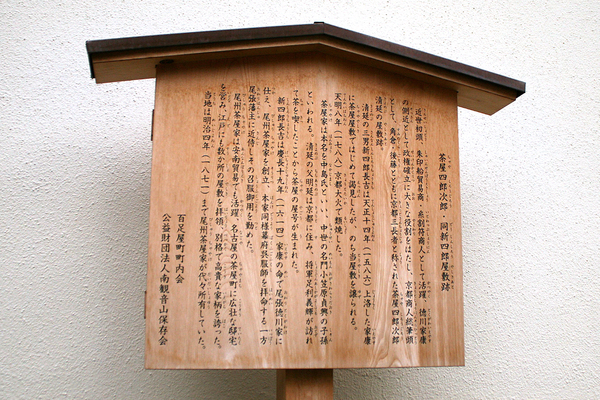 茶屋四郎次郎・同新四郎屋敷跡
近世初頭、朱印船貿易商人、糸割符商人として活躍、徳川家康
の側近として政権確立に大きな役割をはたし、京都商人総筆頭
として、角倉・後藤とともに京都三長者と称された茶屋四郎次郎
清延の屋敷跡。
清延の三男新四郎長吉は天正十四年(一五八六)上洛した家康
に茶屋屋敷ではじめて謁見したが、のち当屋敷を譲られる。
天明八年(一七八八)京都大火で類焼した。
茶屋家は本名を中島氏といい、中世の名門小笠原貞興の子孫
といわれる。清延の父明延は京都に住み、将軍足利義輝が訪れ
て茶を喫したことから茶屋の屋号が生まれた。
新四郎長吉は慶長十九年(一六一四)家康の命で尾張徳川家に
仕え、尾州茶屋家を創立、本家同様幕府呉服師を拝命する一方
尾張藩主に近侍しその召服御用を勤めた。
尾州茶屋家は安南貿易でも活躍、名古屋の茶屋町に広壮な邸宅
を営み、江戸にも数か所の屋敷を拝領、別格で高貴な家柄を誇った。
当地は明治四年(一八七一)まで尾州茶屋家が代々所有していた。
百足屋町町内会
公益財団法人南観音山保存会